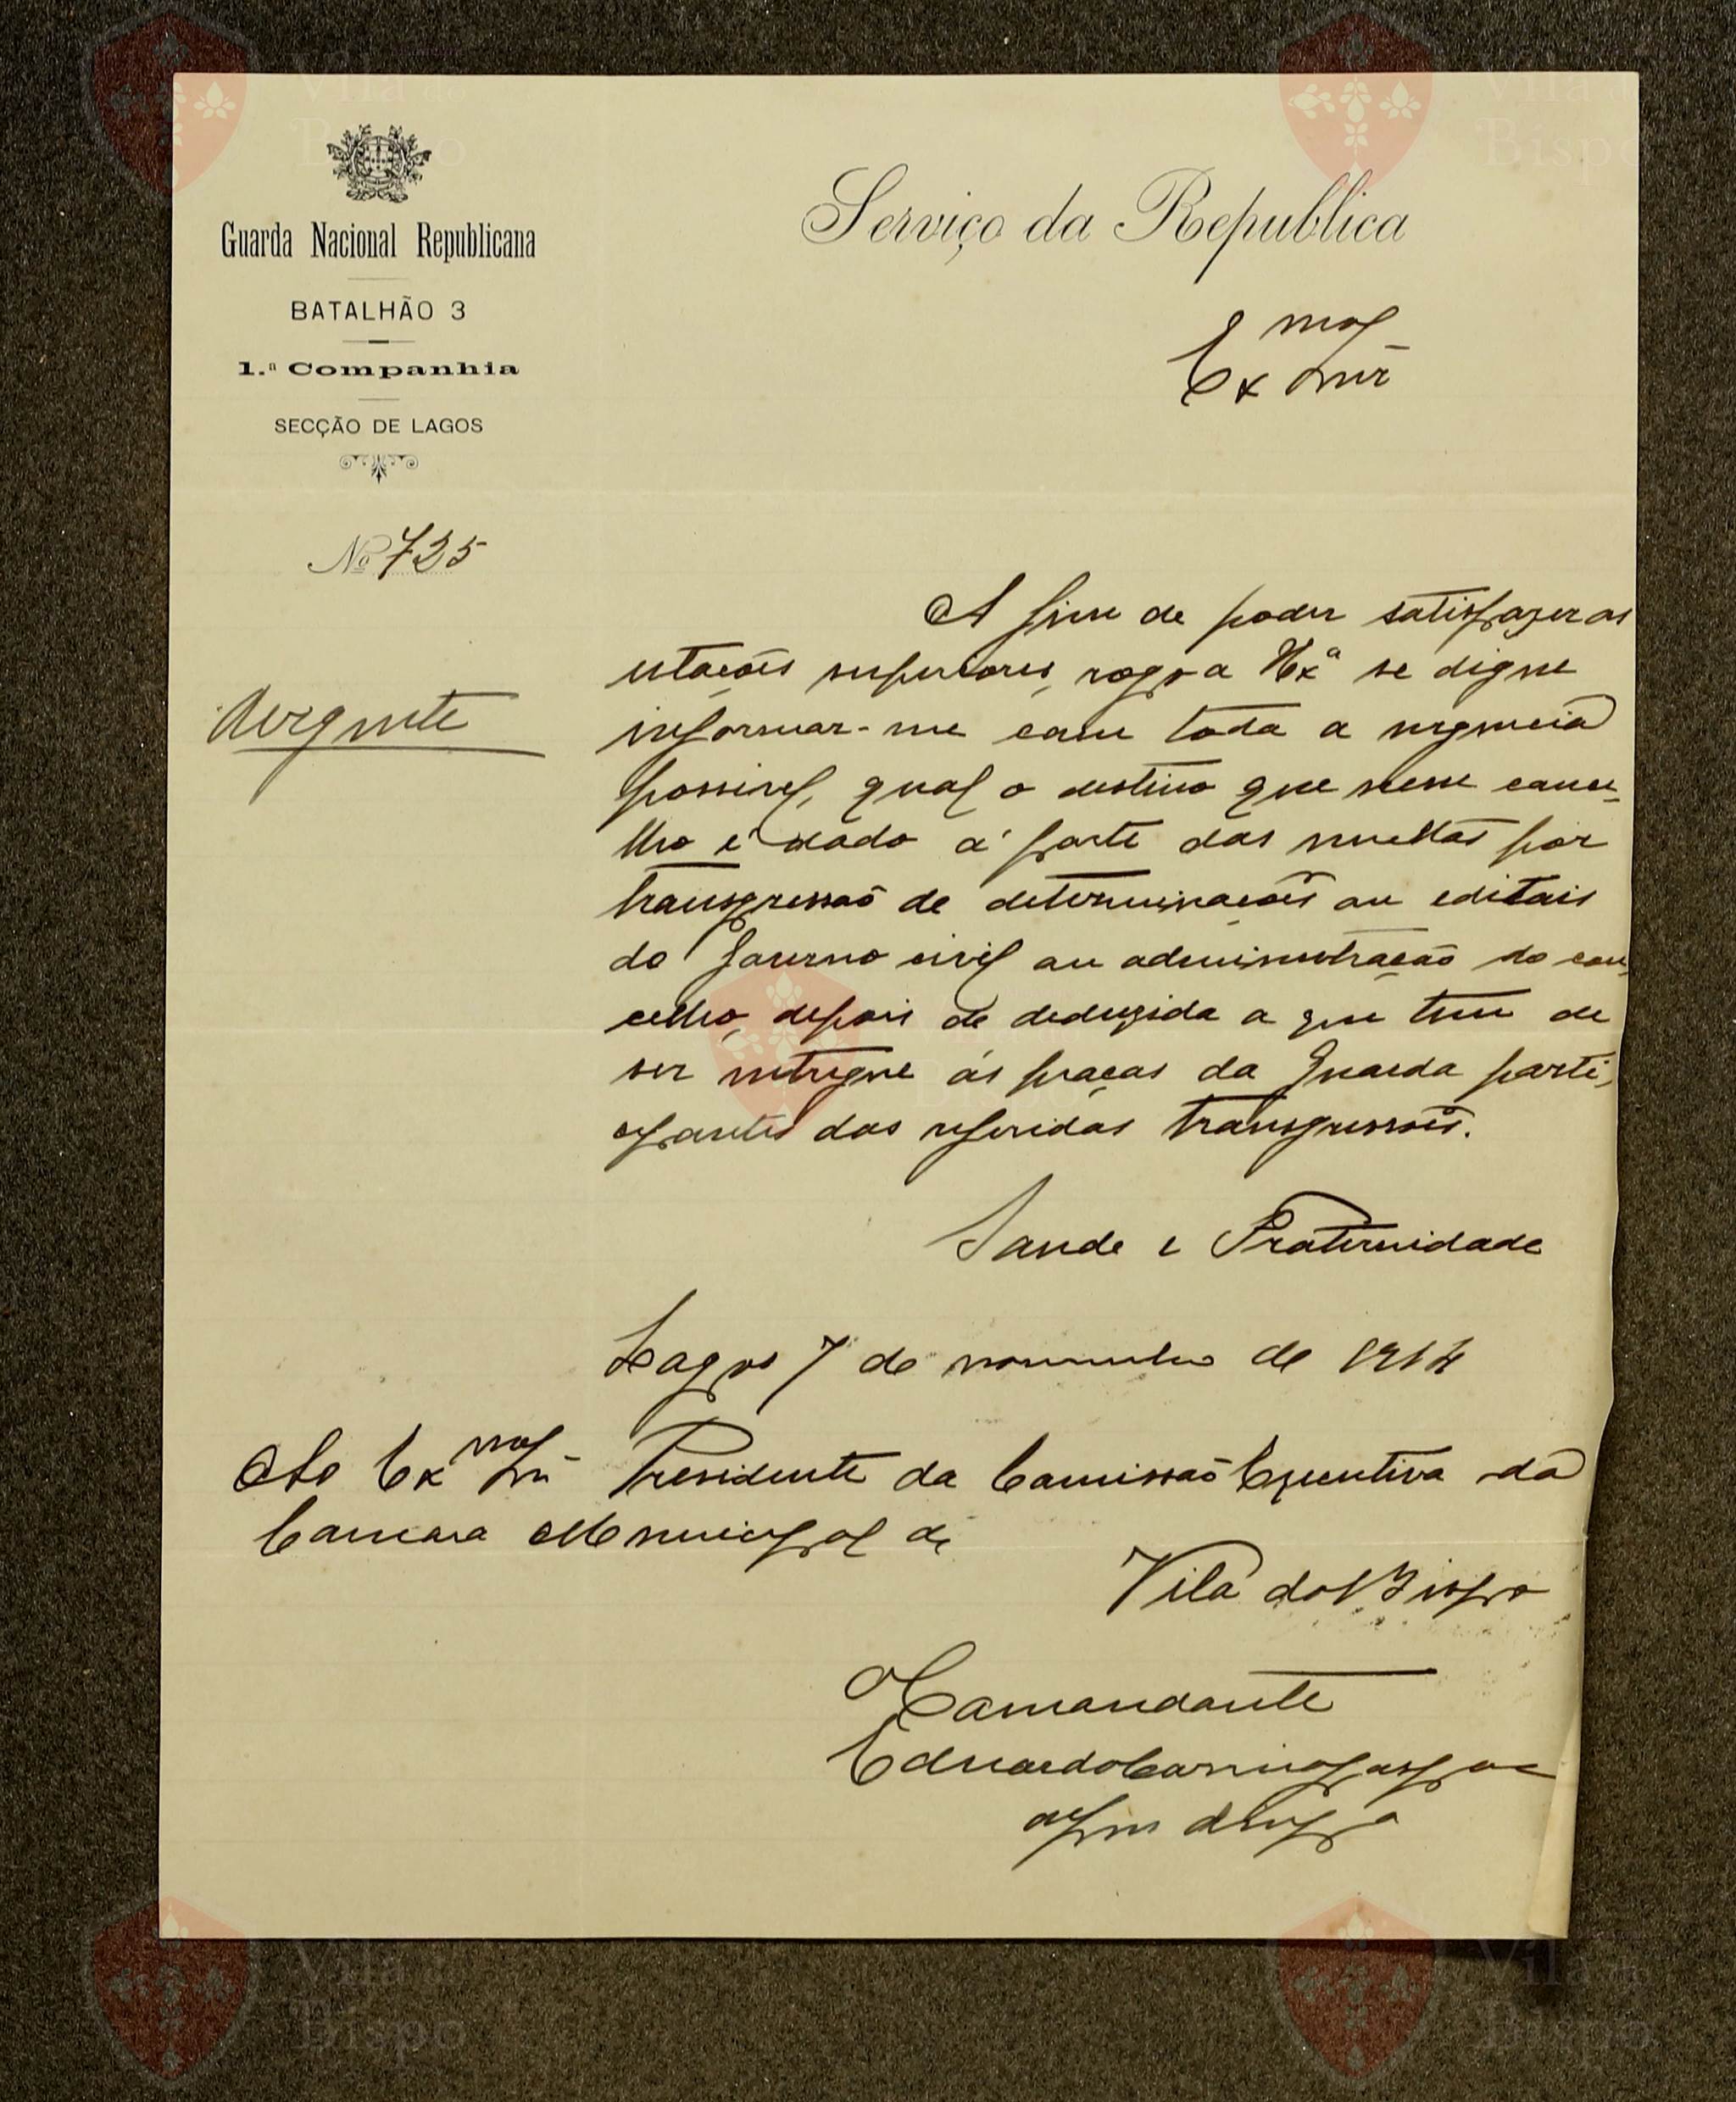 Guarda Nacional Republicana
BATALHÃO 3
1.ª Companhia
SECÇÃO DE LAGOS
Nº 725
Urgente
Serviço da Republica
Exmo Snr
A fim de poder satisfazer as
estações superiores, rogo a V Exª se digne
informar-me com toda a urgencia
possivel, qual o destino que nesse conce-
lho é dado á parte das multas por
transgressão de determinações ou editais
do Governo civil ou administração do con-
celho, depois de deduzida a que tem de
ser entregue ás praças da Guarda parti-
cipantes das referidas transgressões.
Saude e Fraternidade
Lagos 7 de novembro de 1914
Ao Exmo Snr Presidente da Comissão Executiva da
Camara Municipal de
Vila do Bispo
O Comandante
Eduardo
Vila do
Bispo